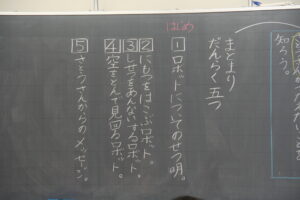 知ろう。
まとまり
だんらく 五つ
はじめ
1 ロボットについてのせつ明。
2 にもつをはこぶロボット。
3 しせつをあんないするロボット。
4 空をとんで見回るロボット。
5 さとうさんからのメッセージ。